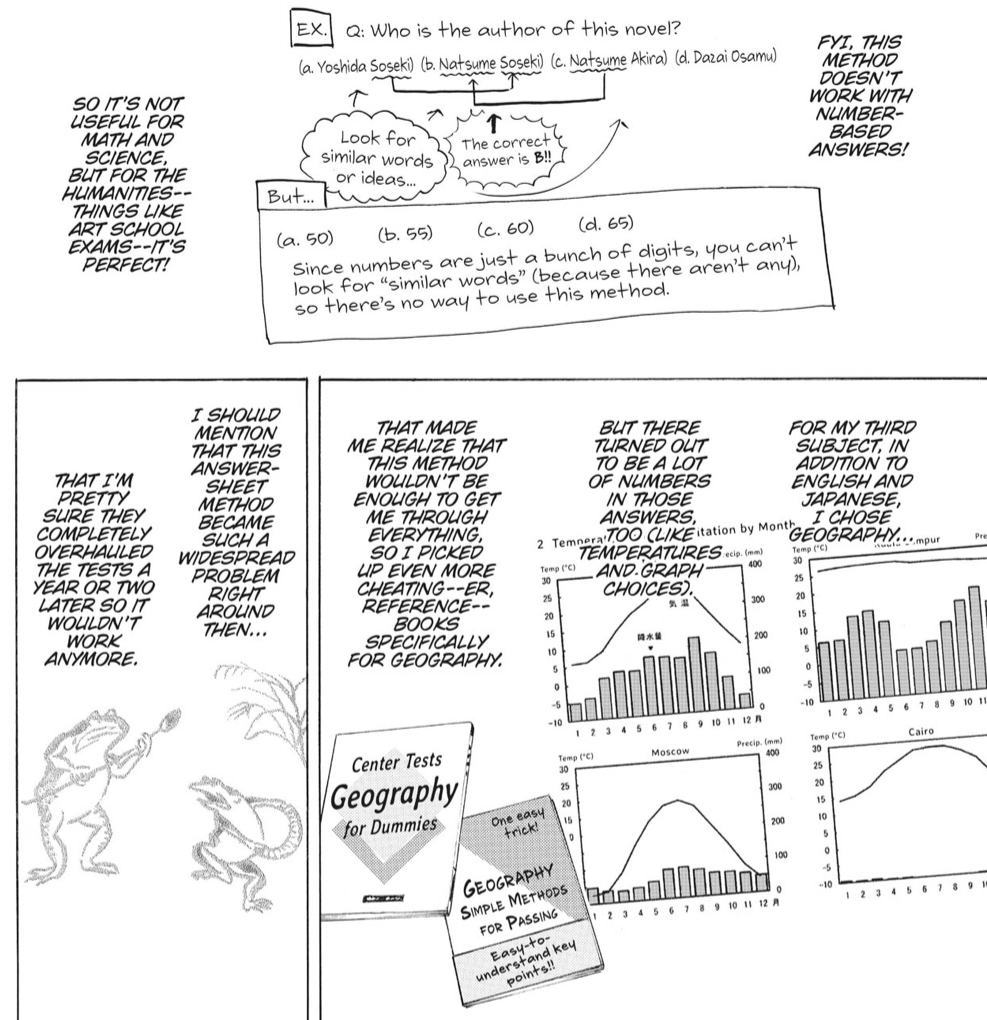 FYI, THIS
METHOD
DOESN'T
WORK WITH
NUMBER-
BASED
ANSWERS!
EX. Q: Who is the author of this novel?
(a. Yoshida Soseki) (b. Natsume Soseki) (c. Natsume Akira) (d. Dazai Osamu)
Look for
similar words
or ideas...
The correct
answer is B!!
But...
(a. 50) (b. 55) (c. 60) (d. 65)
Since numbers are just a bunch of digits, you can't
look for "similar words" (because there aren't any),
so there's no way to use this method.
SO IT'S NOT
USEFUL FOR
MATH AND
SCIENCE,
BUT FOR THE
HUMANITIES--
THINGS LIKE
ART SCHOOL
EXAMS--IT'S
PERFECT!
FOR MY THIRD
SUBJECT, IN
ADDITION TO
ENGLISH AND
JAPANESE,
I CHOSE
GEOGRAPHY...
BUT THERE
TURNED OUT
TO BE A LOT
OF NUMBERS
IN THOSE
ANSWERS,
TOO (LIKE
TEMPERATURES
AND GRAPH
CHOICES).
THAT MADE
ME REALIZE THAT
THIS METHOD
WOULDN'T BE
ENOUGH TO GET
ME THROUGH
EVERYTHING,
SO I PICKED
UP EVEN MORE
CHEATING--ER,
REFERENCE--
BOOKS
SPECIFICALLY
FOR GEOGRAPHY.
2 by Month
Temp (°C)
400
300
200
100
0
30
25
20
15
10
5
0
-5
-10
気温
降水量
1 2 3 4 5 6 7 8 9 10 11 12 月
Temp (°C)
30
25
20
15
10
5
0
-5
-10
1 2 3 4 5 6 7 8 9 10 11
Temp (°C) Moscow Precip. (mm)
400
300
200
100
0
30
25
20
15
10
5
0
1 2 3 4 5 6 7 8 9 10 11 12 月
Temp (°C) Cairo
30
25
20
15
10
5
0
-5
-10
1 2 3 4 5 6 7 8 9
Center Tests
Geography
for Dummies
One easy
trick!
GEOGRAPHY
SIMPLE METHODS
FOR PASSING
Easy-to-
understand key
points!!
I SHOULD
MENTION
THAT THIS
ANSWER-
SHEET
METHOD
BECAME
SUCH A
WIDESPREAD
PROBLEM
RIGHT
AROUND
THEN...
THAT I'M
PRETTY
SURE THEY
COMPLETELY
OVERHAULED
THE TESTS A
YEAR OR TWO
LATER SO IT
WOULDN'T
WORK
ANYMORE.